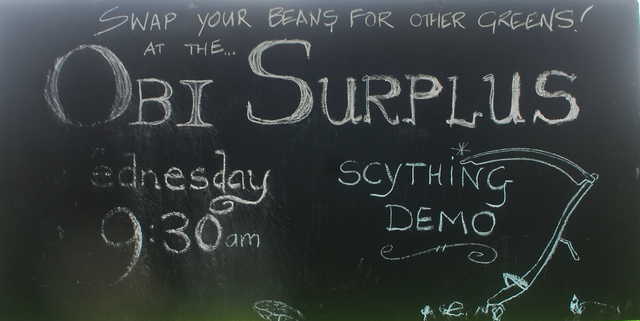 SWAP YOUR BEANS FOR OTHER GREENS!
AT THE...
OBI SURPLUS
ednesday
9:30am
SCYTHING
DEMO